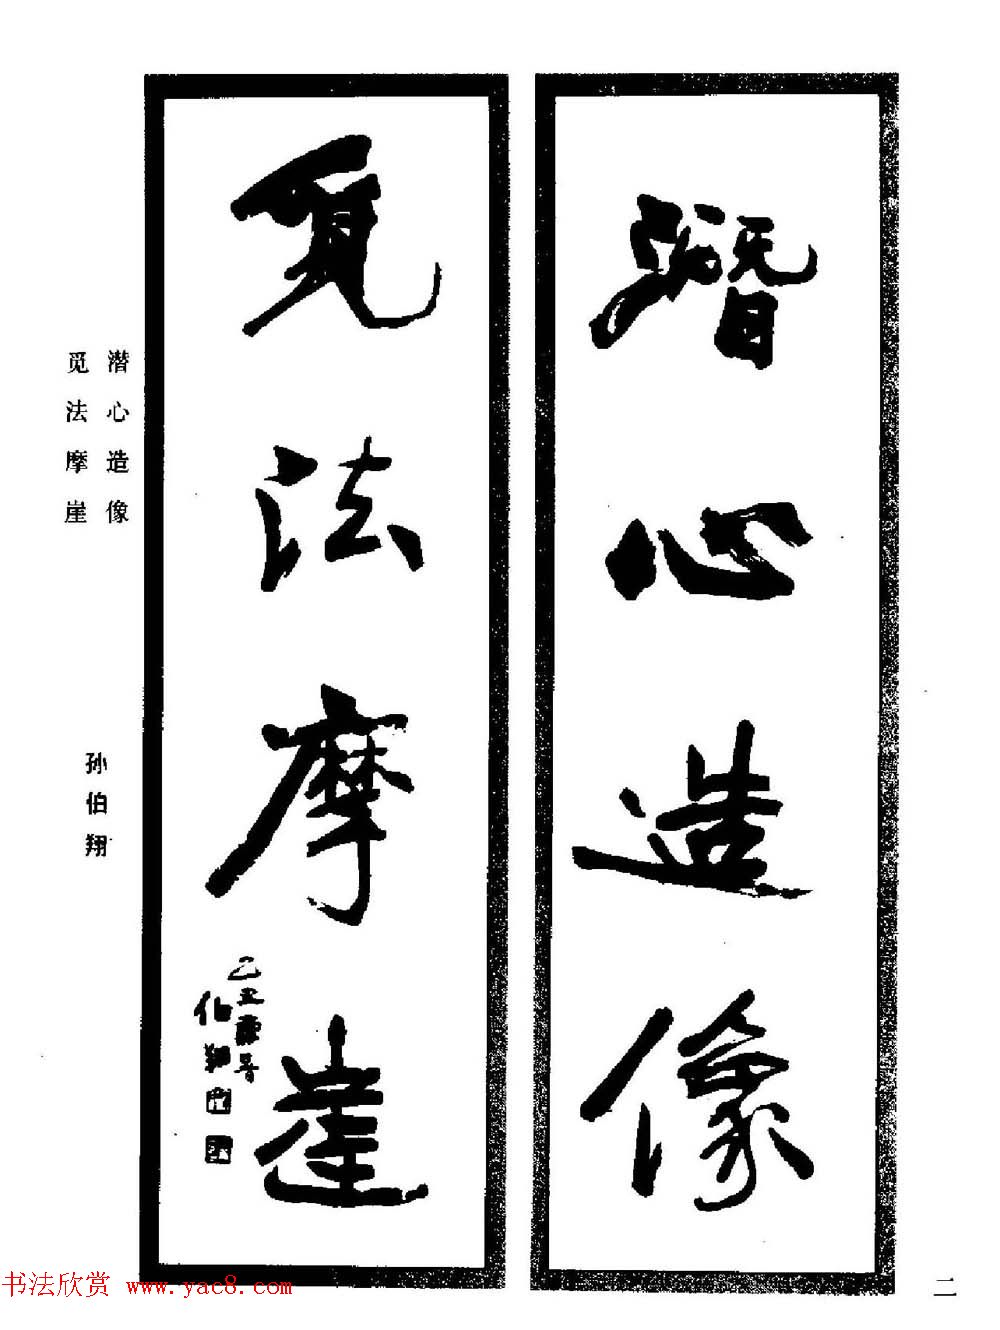 潛心造像
覓法摩崖
乙丑
伯翔
潜心造像
觅法摩崖
孙伯翔
二
书法欣赏 www.yac8.com